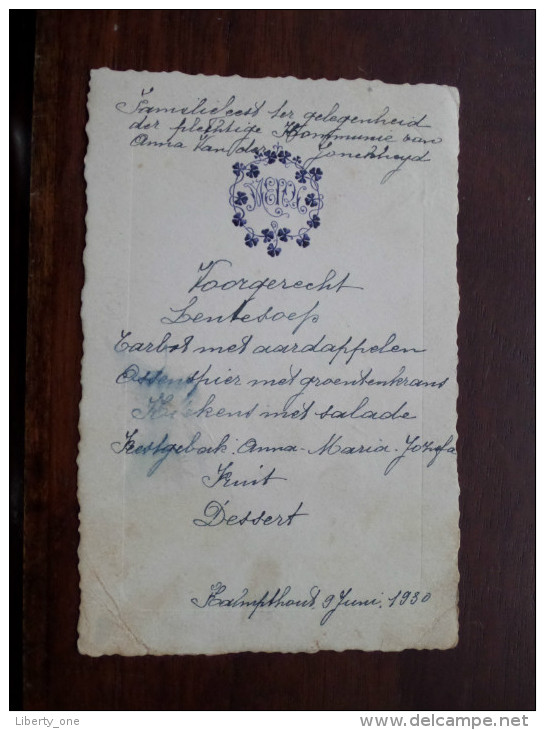 Familiefeest ter gelegenheid
der plechtige Kommunie van
Anna Van der Jonckheyd
MENU
Voorgerecht
Lentesoep
Tarbot met aardappelen
Ossenspier met groentenkrans
Kiekens met salade
Feestgebak. Anna-Maria-Jozefa
Fruit
Dessert
Kalmpthout, 9 Juni, 1930
Liberty_one
www.delcampe.net